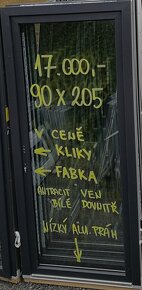 17.000,-
90 x 205
V CENĚ
← KLIKY
← FABKA
ANTRACIT VEN
BÍLÉ DOVNITŘ
NÍZKÝ ALU. PRÁH
↓